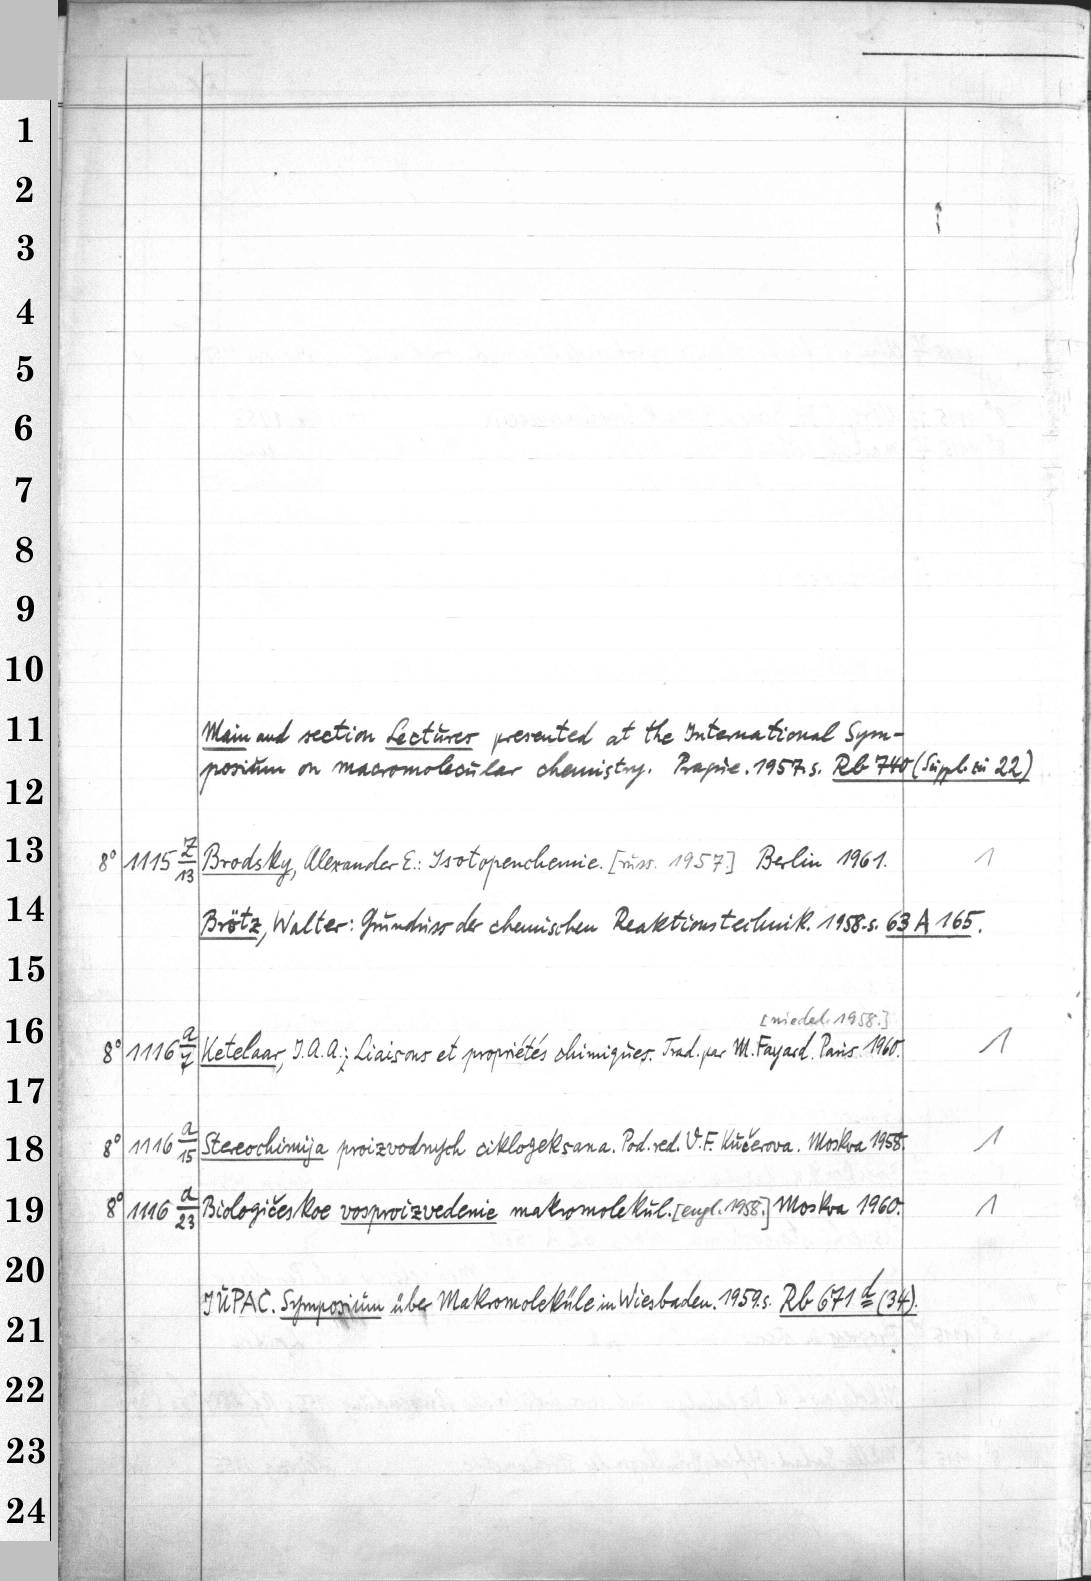 1
2
3
4
5
6
7
8
9
10
11
Main and section Lectures presented at the International Sym-
posium on macromolecular chemistry. Prague. 1957. s. Rb 740 (Suppl. zu 22)
12
13 8° 1115 Z/13 Brodsky, Alexander E.: Isotopenchemie. [russ. 1957.] Berlin 1961. 1
14 Brötz, Walter: Grundriss der chemischen Reaktionstechnik. 1958. s. 63 A 165.
15
[niederl. 1958.]
16 8° 1116 a/y Ketelaar, J.A.A.; Liaisons et propriétés chimiques. Trad. par M. Fayard. Paris 1960. 1
17
18 8° 1116 a/15 Stereochimija proizvodnych ciklogeksana. Pod. red. V.F. Kučerova. Moskva 1958. 1
19 8° 1116 d/23 Biologičeskoe vosproizvedenie makromolekul. [engl. 1958.] Moskva 1960. 1
20
IUPAC. Symposium über Makromoleküle in Wiesbaden. 1959. s. Rb 671 d (34).
21
22
23
24